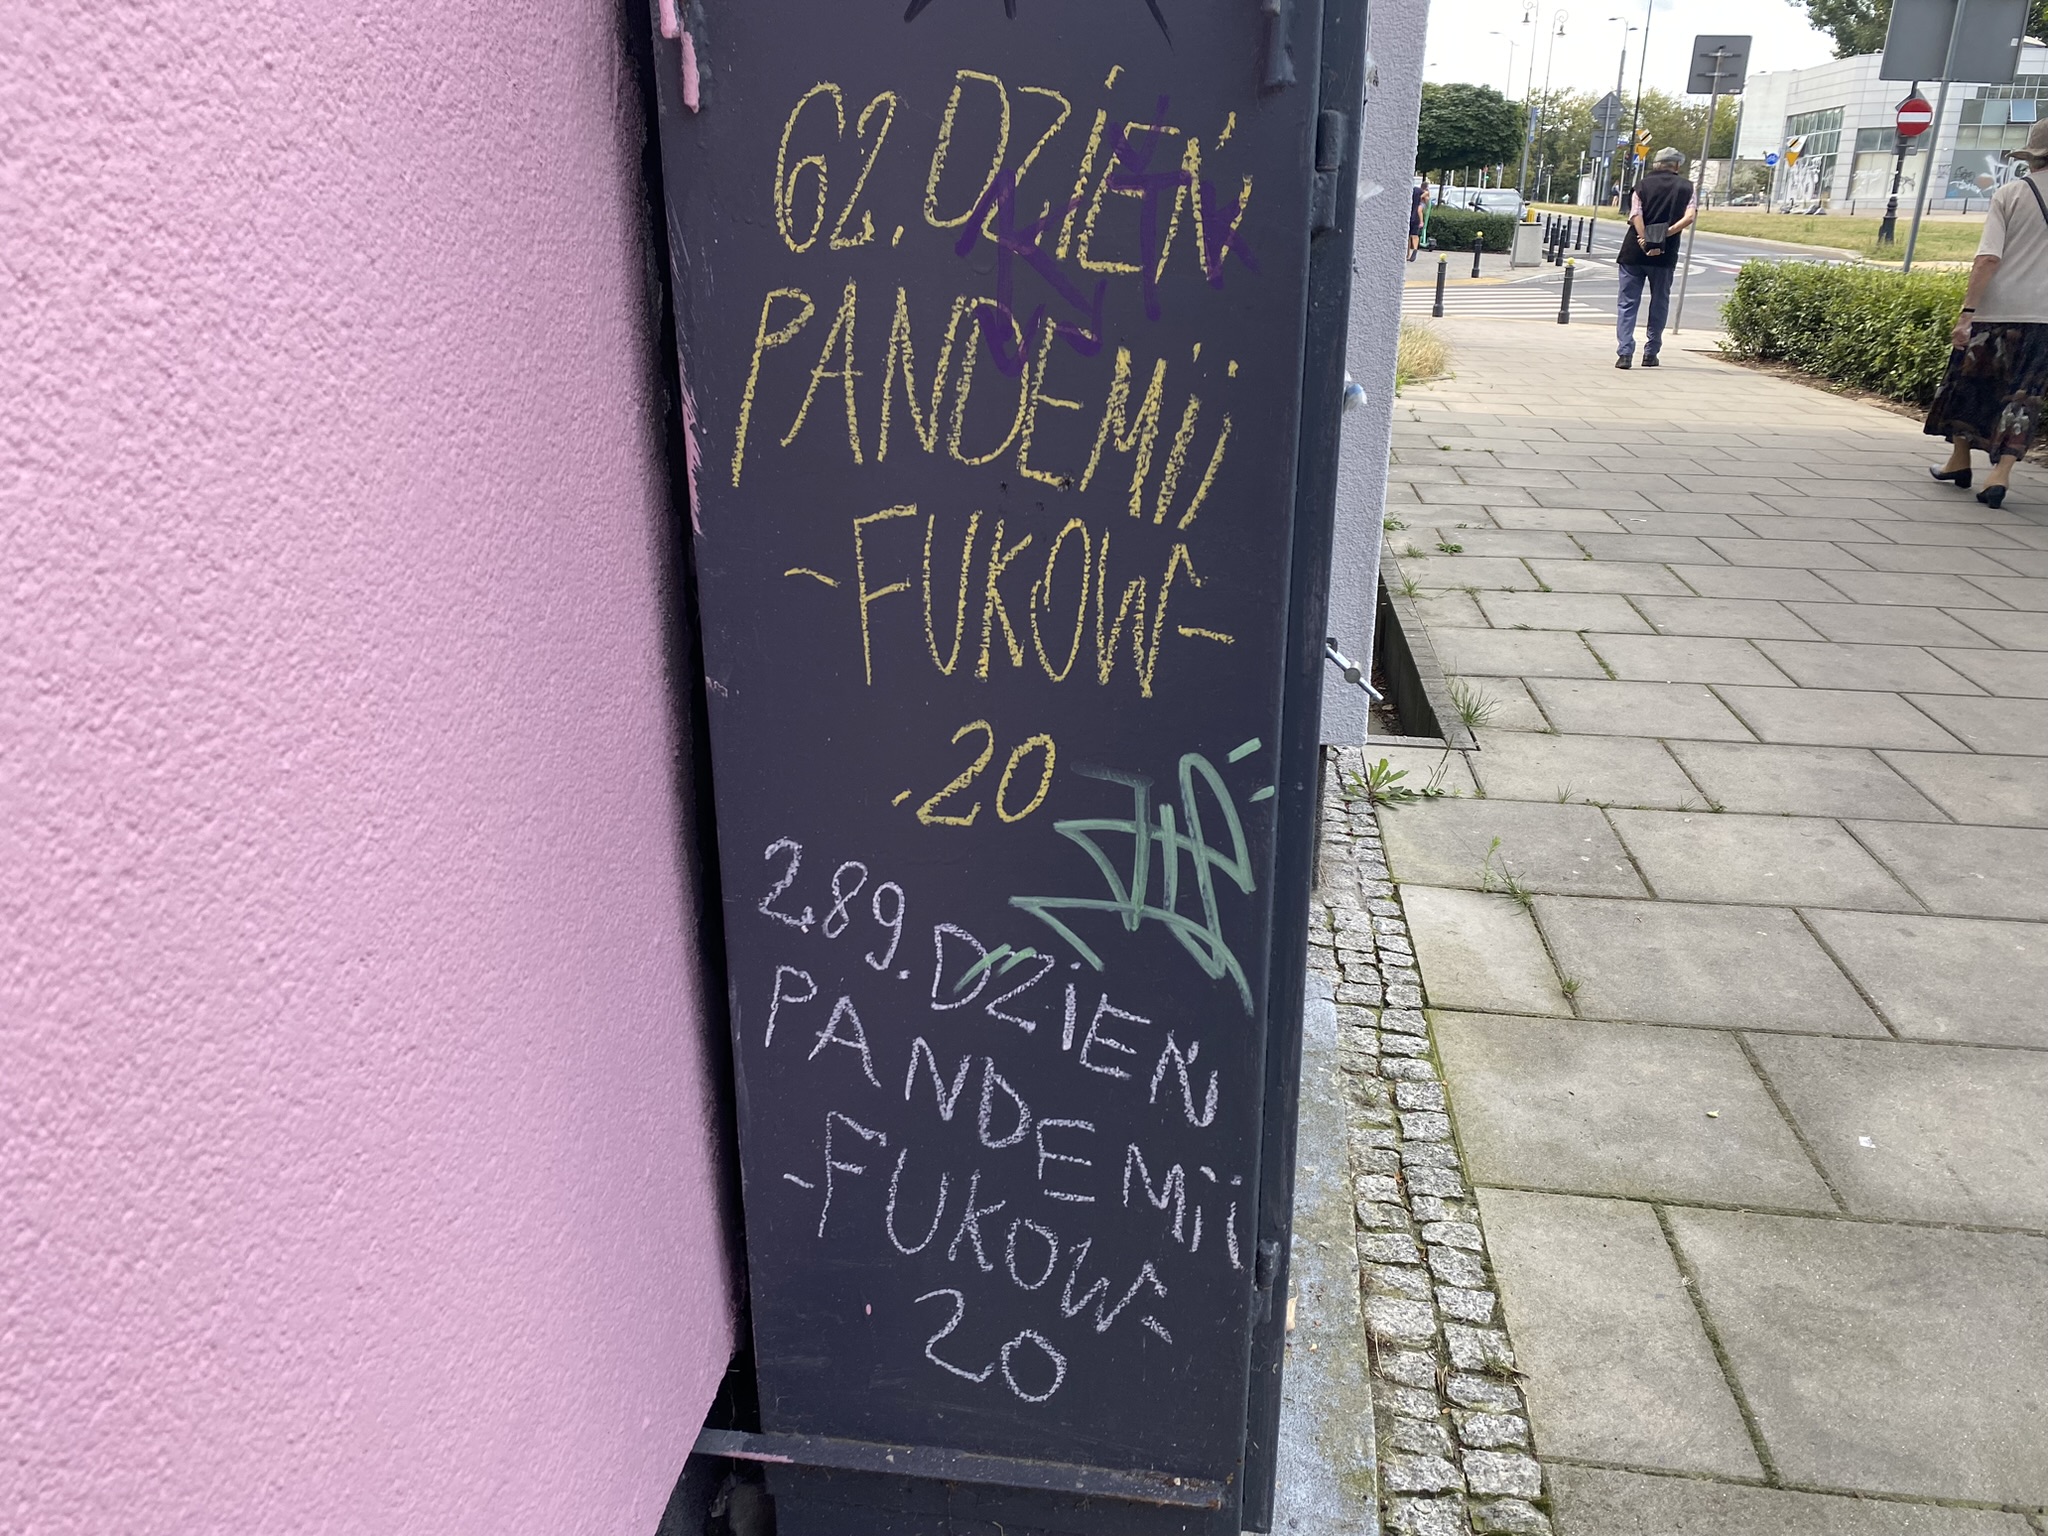 62. DZIEŃ
PANDEMII
-FUKOW-
.20
289. DZIEŃ
PANDEMII
-FUKOW-
20